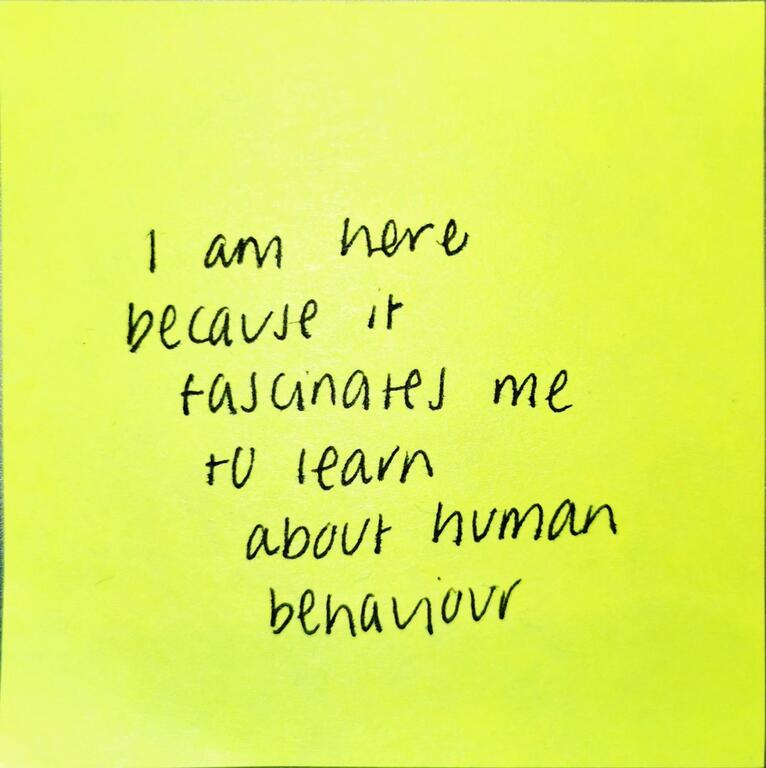 I am here
because it
fascinates me
to learn
about human
behaviour